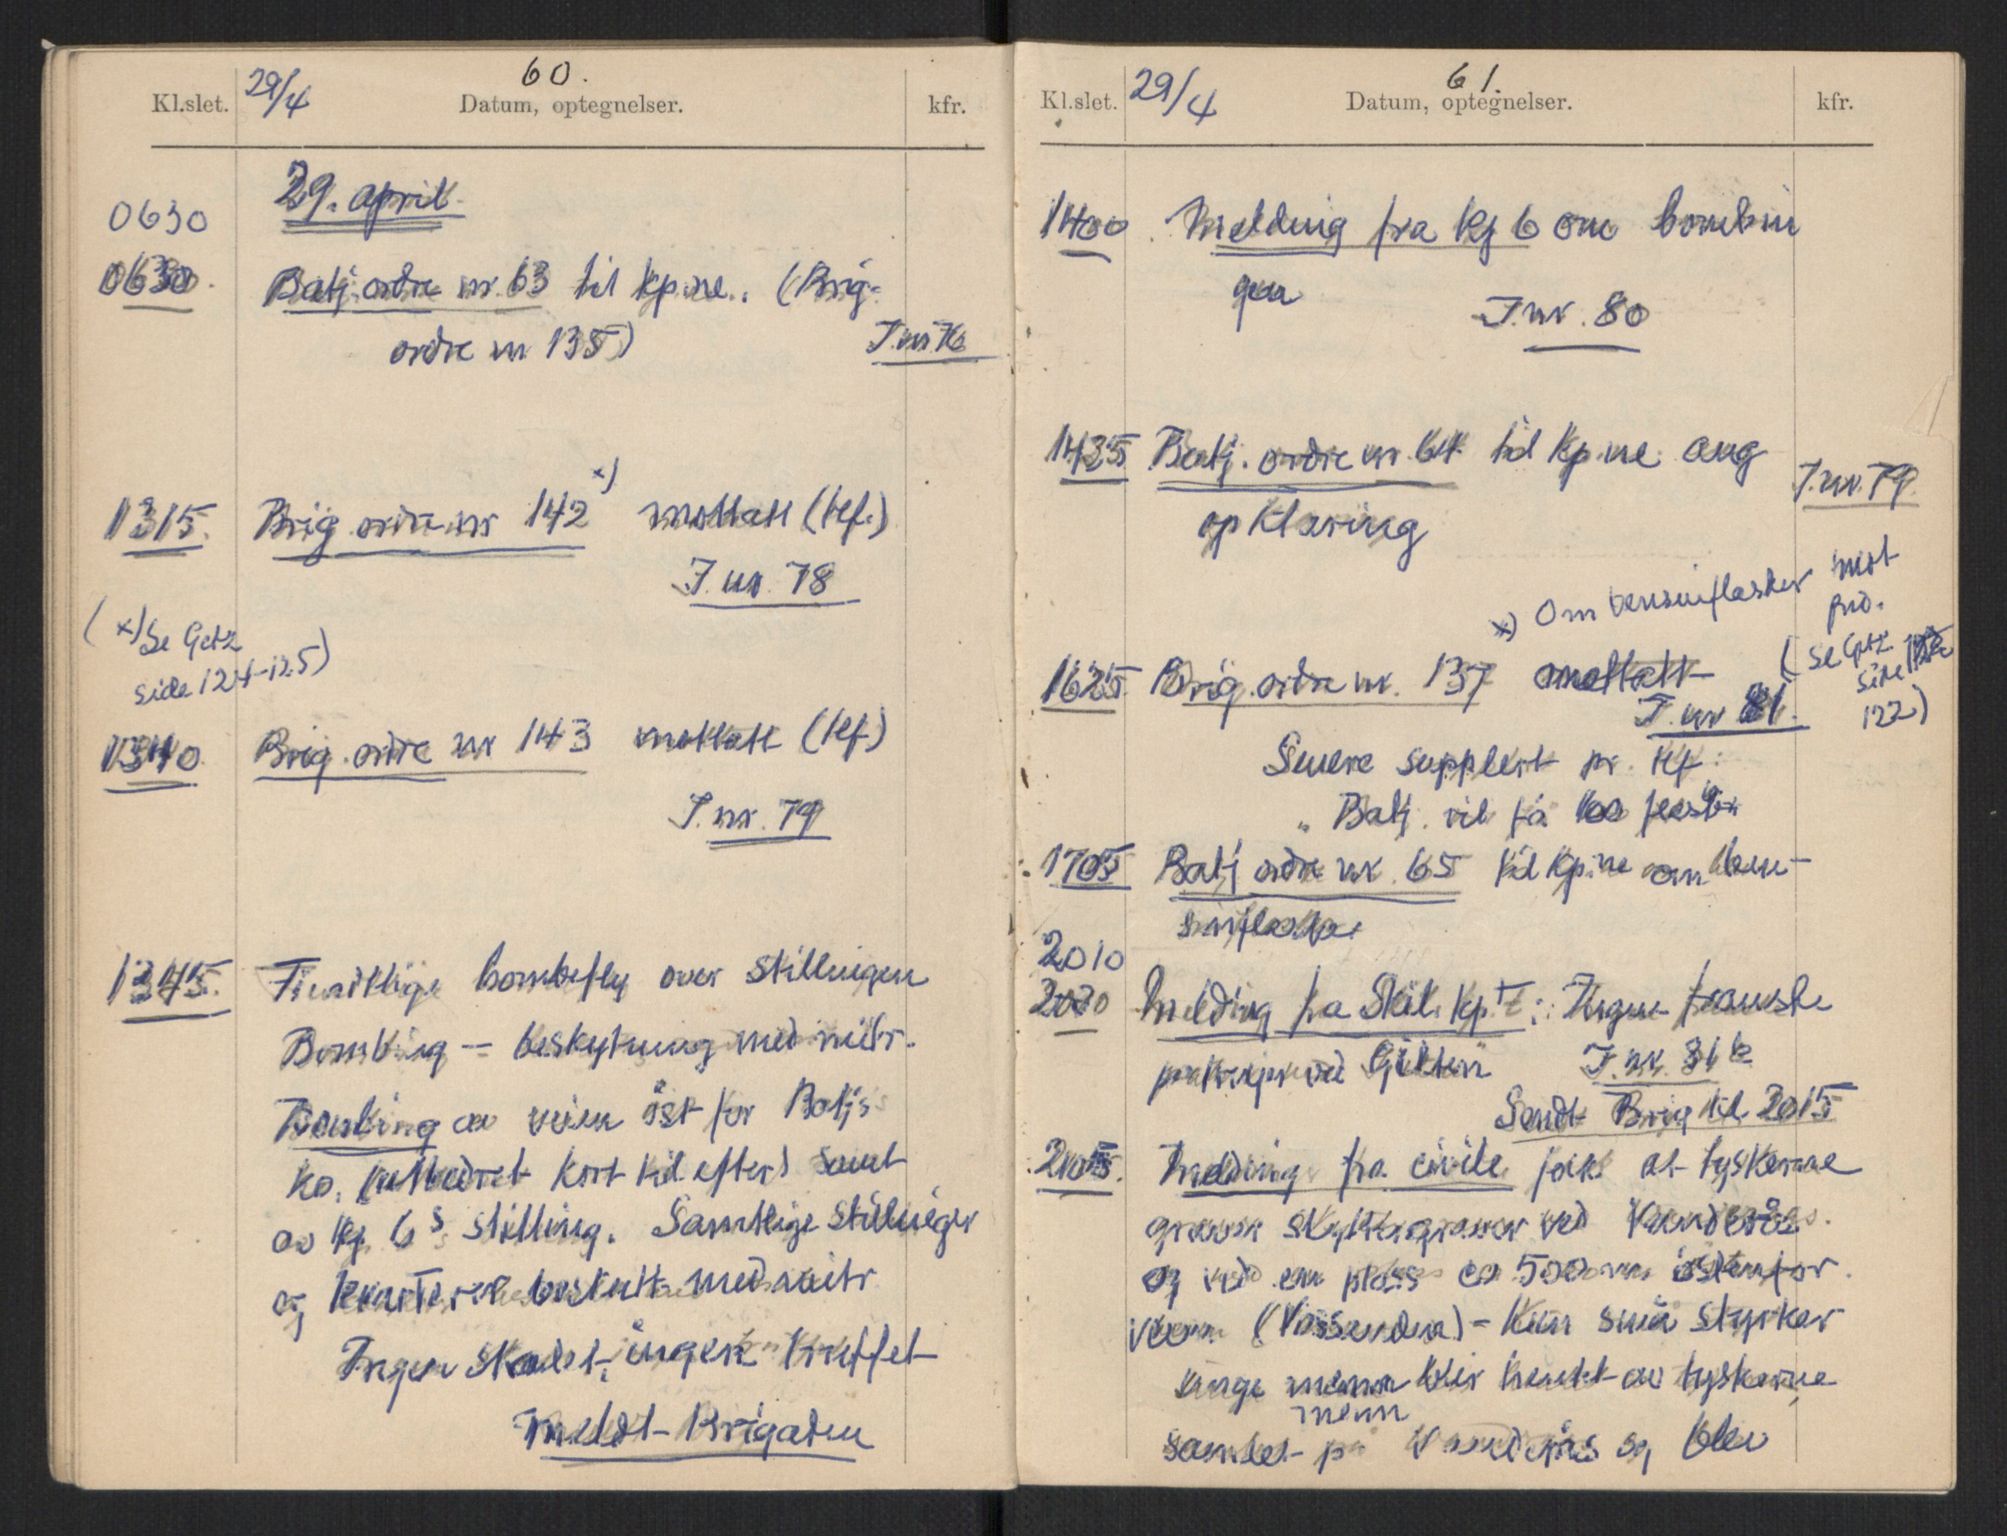 60.
Kl.slet. 29/4 Datum, optegnelser. kfr.
29. april
0630
0630. Batj. ordre nr. 63 til kp.ne. (Brig.
ordre nr 135)
J.nr 76
x)
1315. Brig. ordre nr 142 mottatt (tlf.)
J. nr. 78
( x) Se Getz
side 124-125)
1340 Brig. ordre nr 143 mottatt (tlf.)
J. nr. 79
1345. Fiendtlige bombefly over stillingen
Bombing — beskytning med mitr.
Bombing av veien öst for Batjs
ko. kort tid efter) samt
av kp. 6s stilling. Samtlige stillinger
og kvarterer beskutt med mitr
Ingen skadet, ingen truffet
Meldt Brigaden
61.
Kl.slet. 29/4 Datum, optegnelser. kfr.
1400. Melding fra kp 6 om bombin
gen
J. nr. 80
1435 Batj. ordre nr. 64 til kp.ne ang
J. nr. 79.
opklaring
x) Om bensinflasker mot
pro.
1625 Brig. ordre nr. 137 mottatt
(se Getz
side
J. nr 81.
122)
Senere supplert pr. tlf:
" Batj. vil få 100 flasker
1705 Batj ordre nr. 65 til kp.ne om ben-
sinflaske.
2010
2030 Melding fra Skil. kpt: Ingen franske
ved J. nr. 81 b
Sendt Brig kl. 2015
2105. Melding fra civile folk at tyskerne
graver skyttergraver ved
og ved en plass ca 500 m östenfor
veien (Vossenden) - Kun små styrker
unge menn blir hentet av tyskerne
menn
samlet på og blev